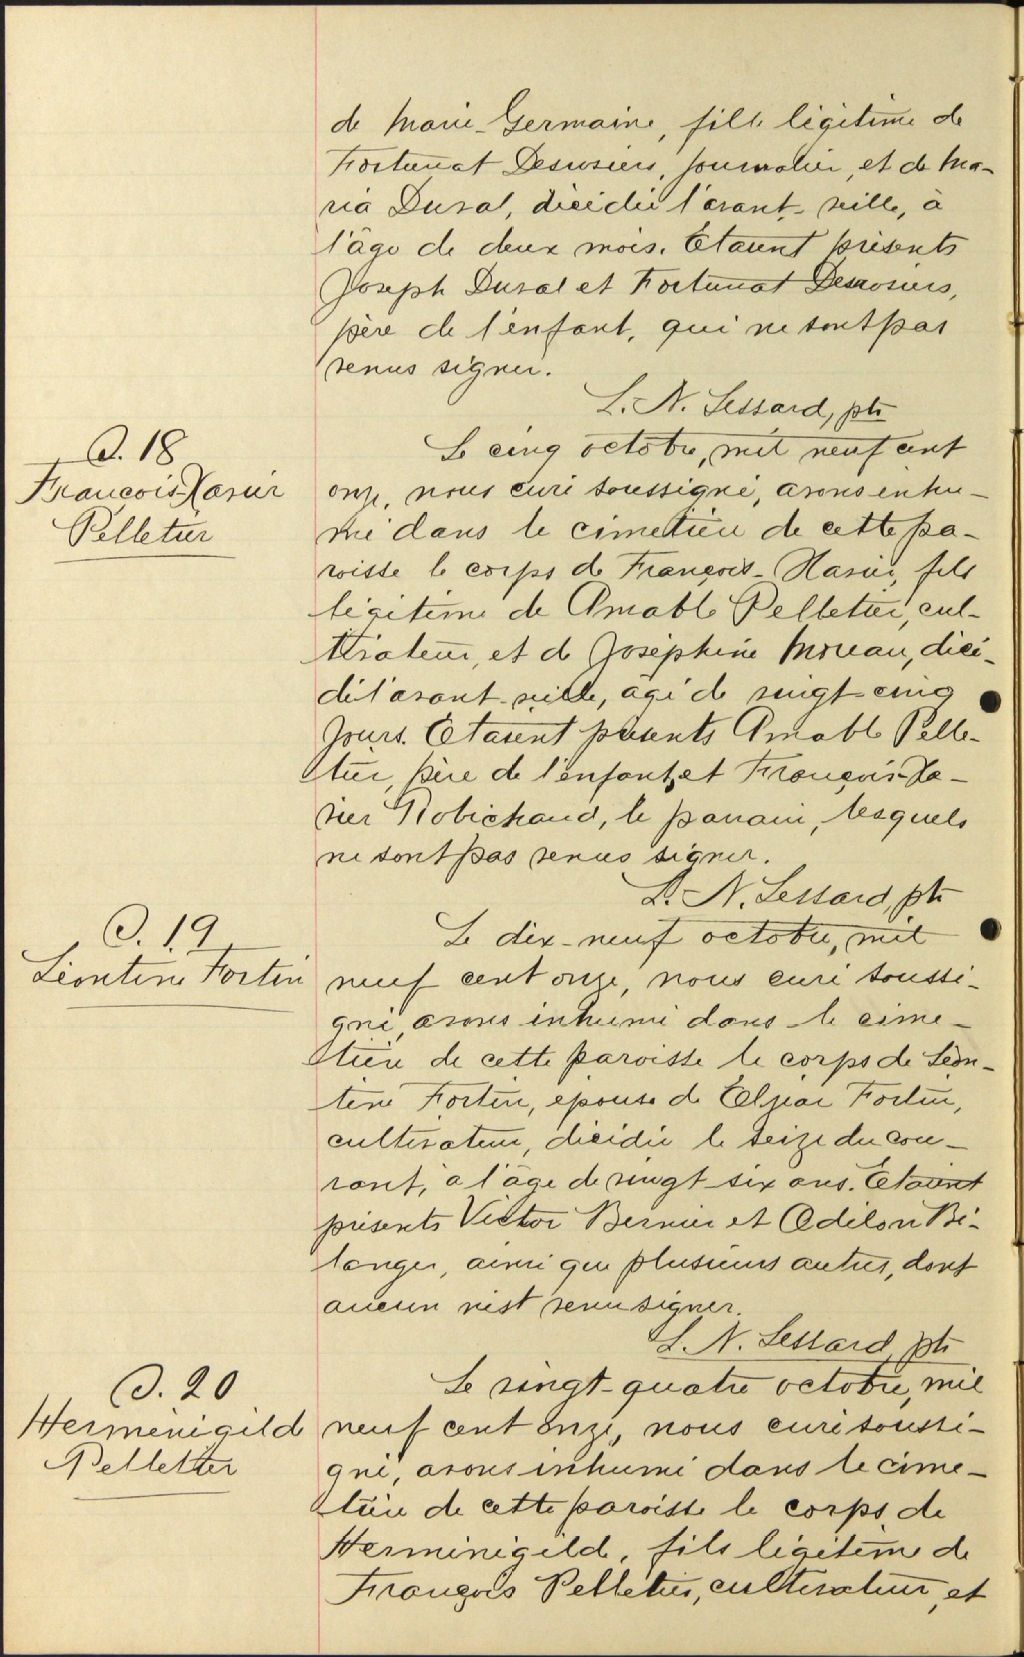 de Marie-Germaine, fille légitime de
Fortunat Desrosiers, journalier, et de Ma-
ria Duval, décédée l'avant-veille, à
l'âge de deux mois. Etaient présents
Joseph Duval et Fortunat Desrosiers,
père de l'enfant, qui ne sont pas
venus signer.
L. N. Lessard, ptr
S. 18
François-Xavier
Pelletier
Le cinq octobre, mil neuf cent
onze, nous curé soussigné, avons inhu-
mé dans le cimetière de cette pa-
roisse le corps de François-Xavier, fils
légitime de Amable Pelletier, cul-
tivateur, et de Joséphine Moreau, décé-
dé l'avant-veille, âgé de vingt-cinq
jours. Etaient présents Amable Pelle-
tier, père de l'enfant, et François-Xa-
vier Robichaud, le parrain, lesquels
ne sont pas venus signer.
L. N. Lessard, ptr
S. 19
Léontine Fortin
Le dix-neuf octobre, mil
neuf cent onze, nous curé soussi-
gné, avons inhumé dans le cime-
tière de cette paroisse le corps de Léon-
tine Fortin, épouse de Elzéar Fortin,
cultivateur, décédée le seize du cou-
rant, à l'âge de vingt-six ans. Etaient
présents Victor Bernier et Odilon Bé-
langer, ainsi que plusieurs autres, dont
aucun n'est venu signer.
L. N. Lessard, ptr
S. 20
Herménigild
Pelletier
Le vingt-quatre octobre, mil
neuf cent onze, nous curé soussi-
gné, avons inhumé dans le cime-
tière de cette paroisse le corps de
Herménigild, fils légitime de
François Pelletier, cultivateur, et